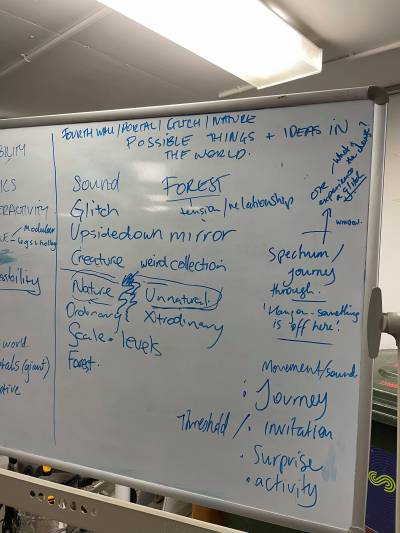 FOURTH WALL/PORTAL/GLITCH/NATURE
POSSIBLE THINGS + IDEAS IN
THE WORLD.
BILITY
ICS
ERACTIVITY
Modular
legs & holley
ssibility
world
tals (giant)
otive
Sound
FOREST
Glitch
tension/relationship
Upsidedown mirror
Creature weird collection
Nature Unnatural
Ordinary Xtrodinary
Scale • levels
Forest.
one
experience
glitch
WINDOW.
Spectrum/
journey
through.
'Hang on - something
is off here!'
Movement/sound
• Journey
Threshold / • invitation
• Surprise
• activity